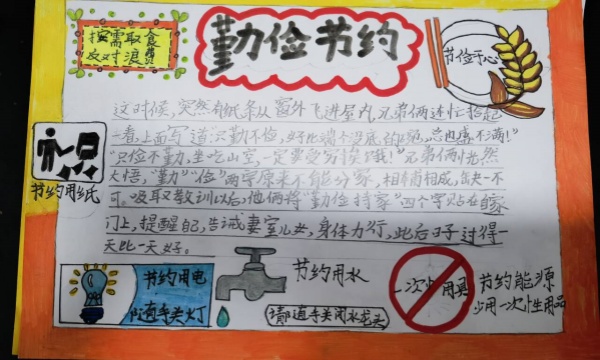 按需取食
反对浪费
勤俭节约
节俭于心
这时候,突然有纸条从窗外飞进屋内,兄弟俩连忙拾起
一看,上面写道:"只勤不俭,好比端个没底的碗,总也盛不满!"
"只俭不勤,坐吃山空,一定要受穷挨饿!"兄弟俩恍然
大悟,"勤""俭"两字原来不能分家,相辅相成,缺一不
可。吸取教训以后,他俩将"勤俭持家"四个字贴在自家
门上,提醒自己,告诫妻室儿女,身体力行,此后日子过得一
天比一天好。
节约用纸
节约用电
随手关灯
节约用水
请随手关闭水龙头
一次性用具
节约能源
少用一次性用品